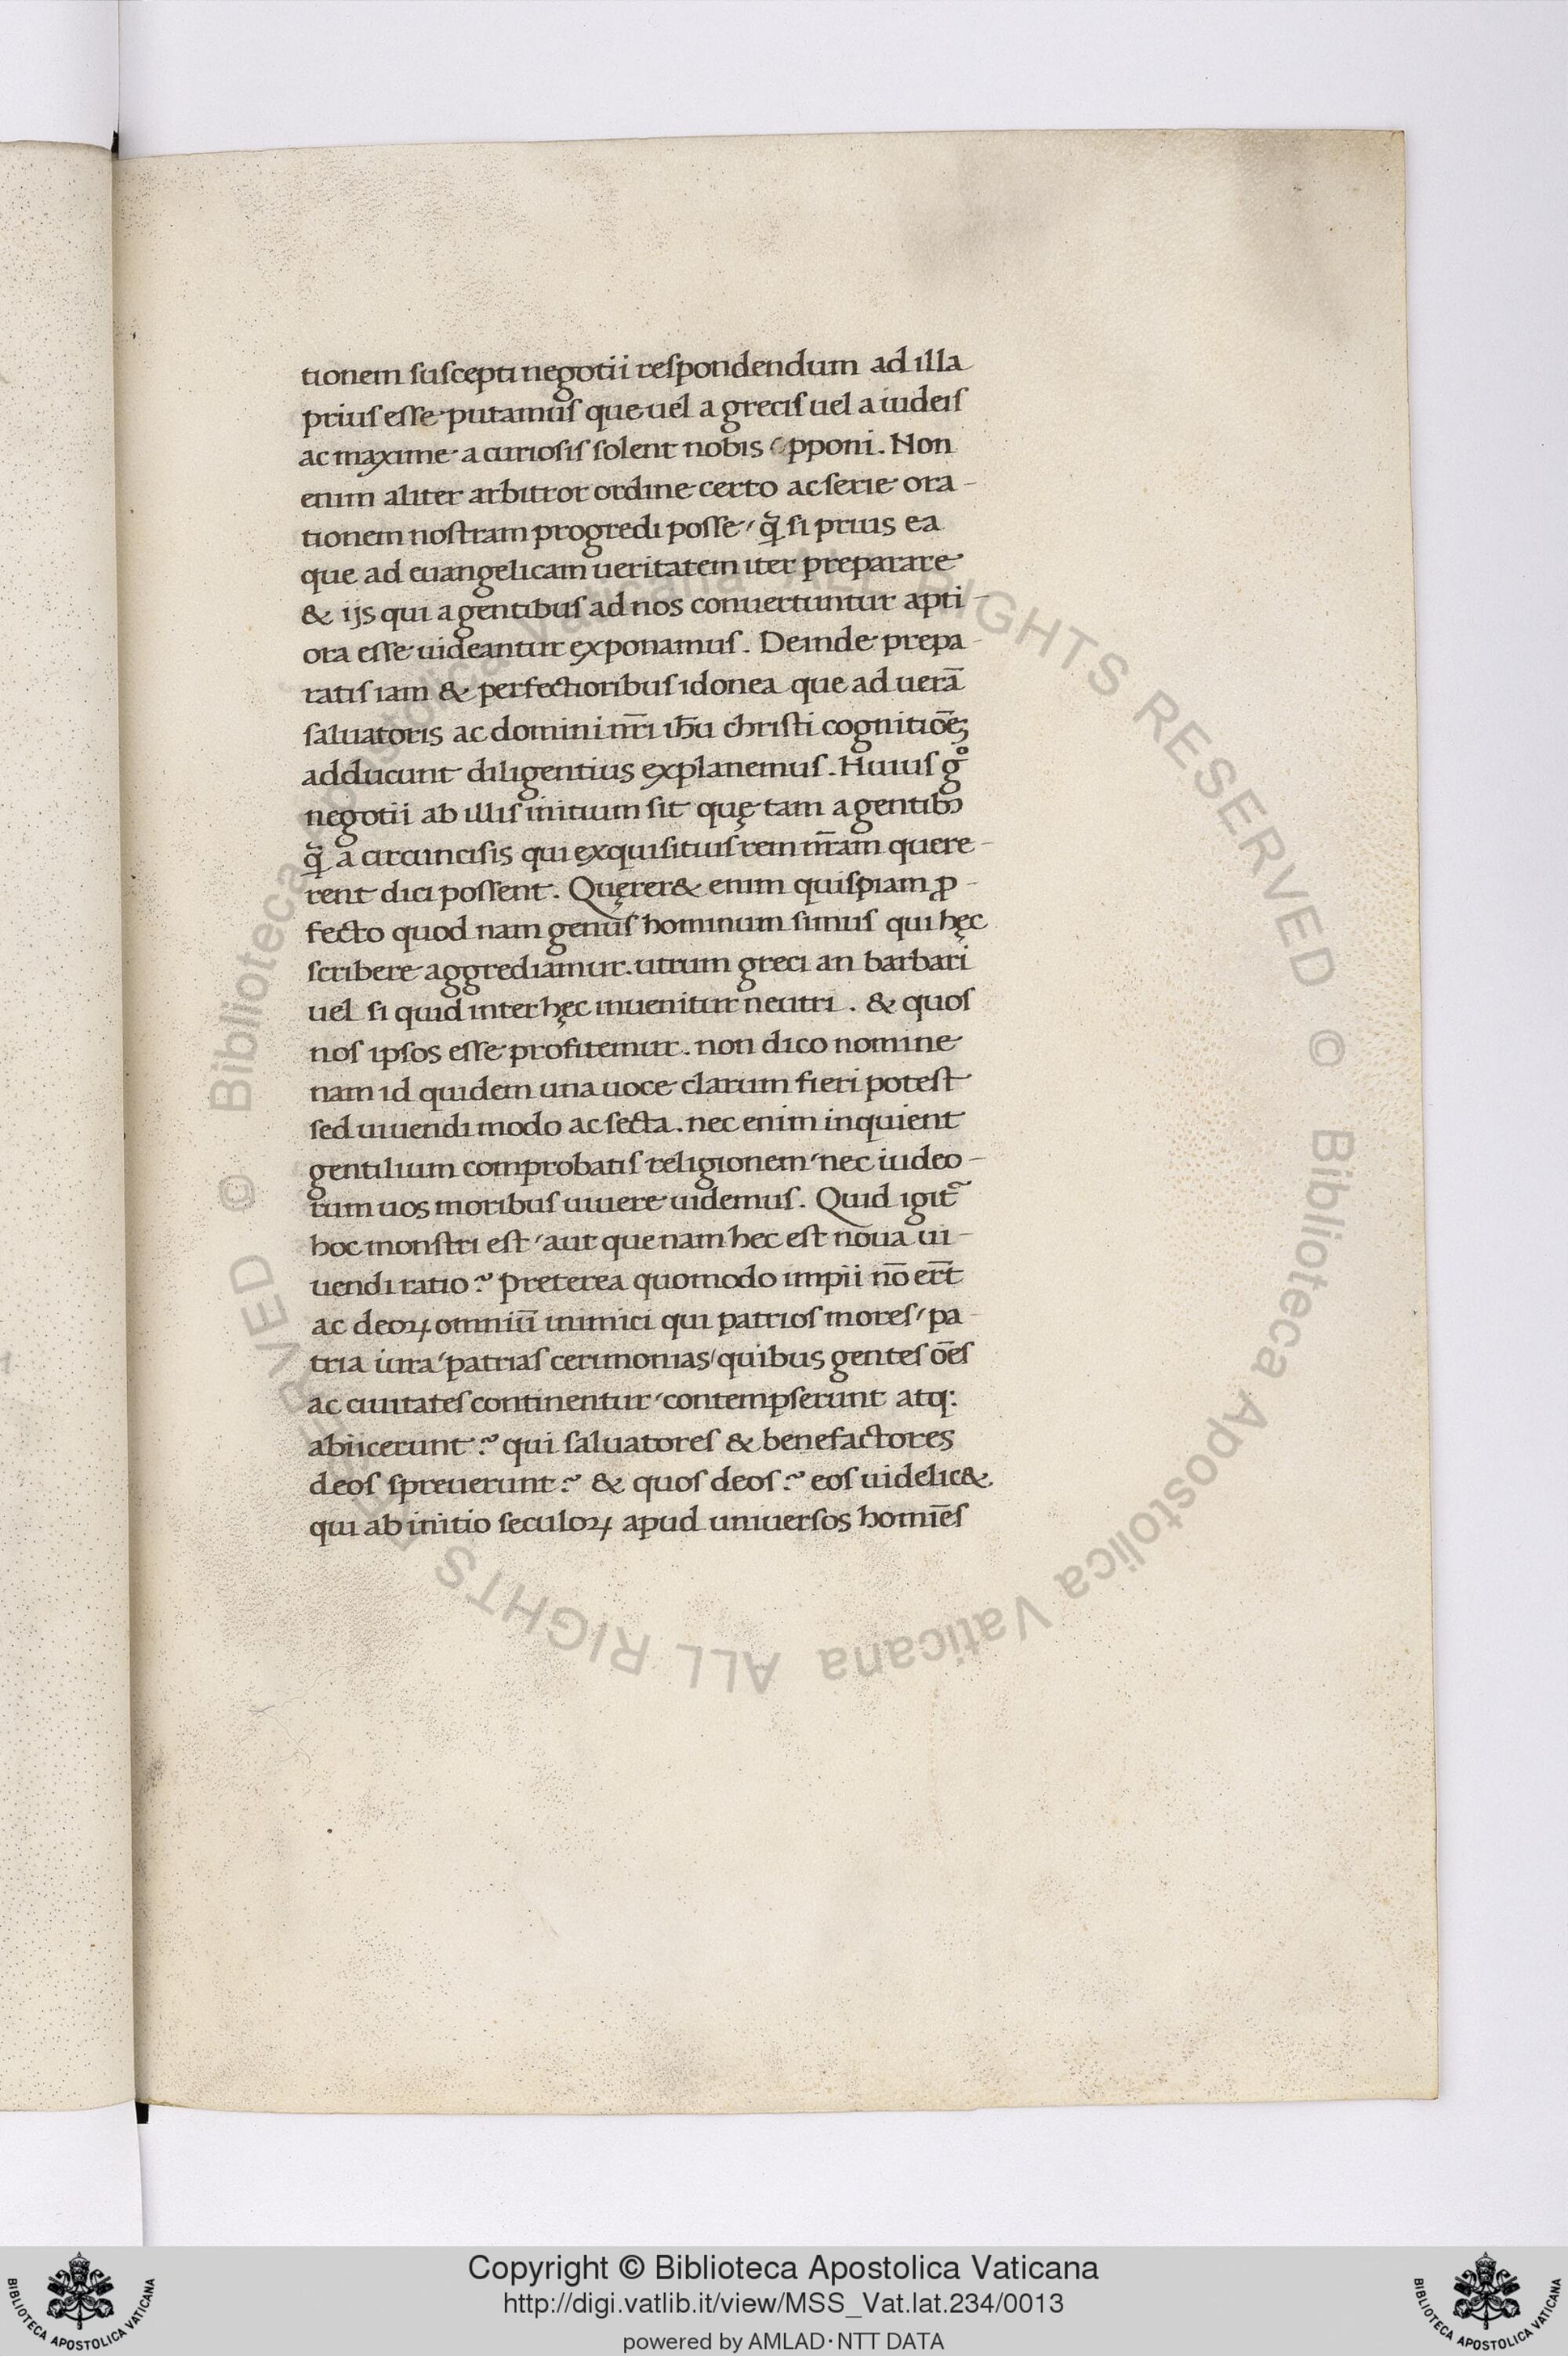 tionem suscepti negotii respondendum ad illa
prius esse putamus que uel a grecis uel a iudeis
ac maxime a curiosis solent nobis opponi. Non
enim aliter arbitror ordine certo ac serie ora-
tionem nostram progredi posse, q̃ si prius ea
que ad euangelicam ueritatem iter preparare
& ijs qui a gentibus ad nos conuertuntur apti-
ora esse uideantur exponamus. Deinde prepa-
ratis iam & perfectioribus idonea que ad uerā
saluatoris ac domini nr̄i ih̄u christi cognitiōeꝫ
adducunt diligentius explanemus. Huius g̊
negotii ab illis initium sit quę tam a gentibꝰ
q̃ a circuncisis qui exquisitius rem nr̄am quere-
rent dici possent. Quęrer& enim quispiam ꝓ-
fecto quod nam genus hominum simus qui hęc
scribere aggrediamur. utrum greci an barbari
uel si quid inter hęc inuenitur neutri. & quos
nos ipsos esse profitemur. non dico nomine
nam id quidem una uoce clarum fieri potest
sed uiuendi modo ac secta. nec enim inquient
gentilium comprobatis religionem, nec iudeo-
rum uos moribus uiuere uidemus. Quid igit᷑
hoc monstri est, aut quenam hec est noua ui-
uendi ratio? Preterea quomodo impii nō er̄t
ac deoꝝ omniū inimici qui patrios mores, pa-
tria iura, patrias cerimonias, quibus gentes ōes
ac ciuitates continentur, contempserunt atq:
abiicerunt? qui saluatores & benefactores
deos spreuerunt? & quos deos? eos uidelic&
qui ab initio seculoꝝ apud uniuersos homiēs
© Biblioteca Apostolica Vaticana ALL RIGHTS RESERVED © Biblioteca Apostolica Vaticana ALL RIGHTS RESERVED
Copyright © Biblioteca Apostolica Vaticana
http://digi.vatlib.it/view/MSS_Vat.lat.234/0013
powered by AMLAD·NTT DATA
BIBLIOTECA APOSTOLICA VATICANA
BIBLIOTECA APOSTOLICA VATICANA